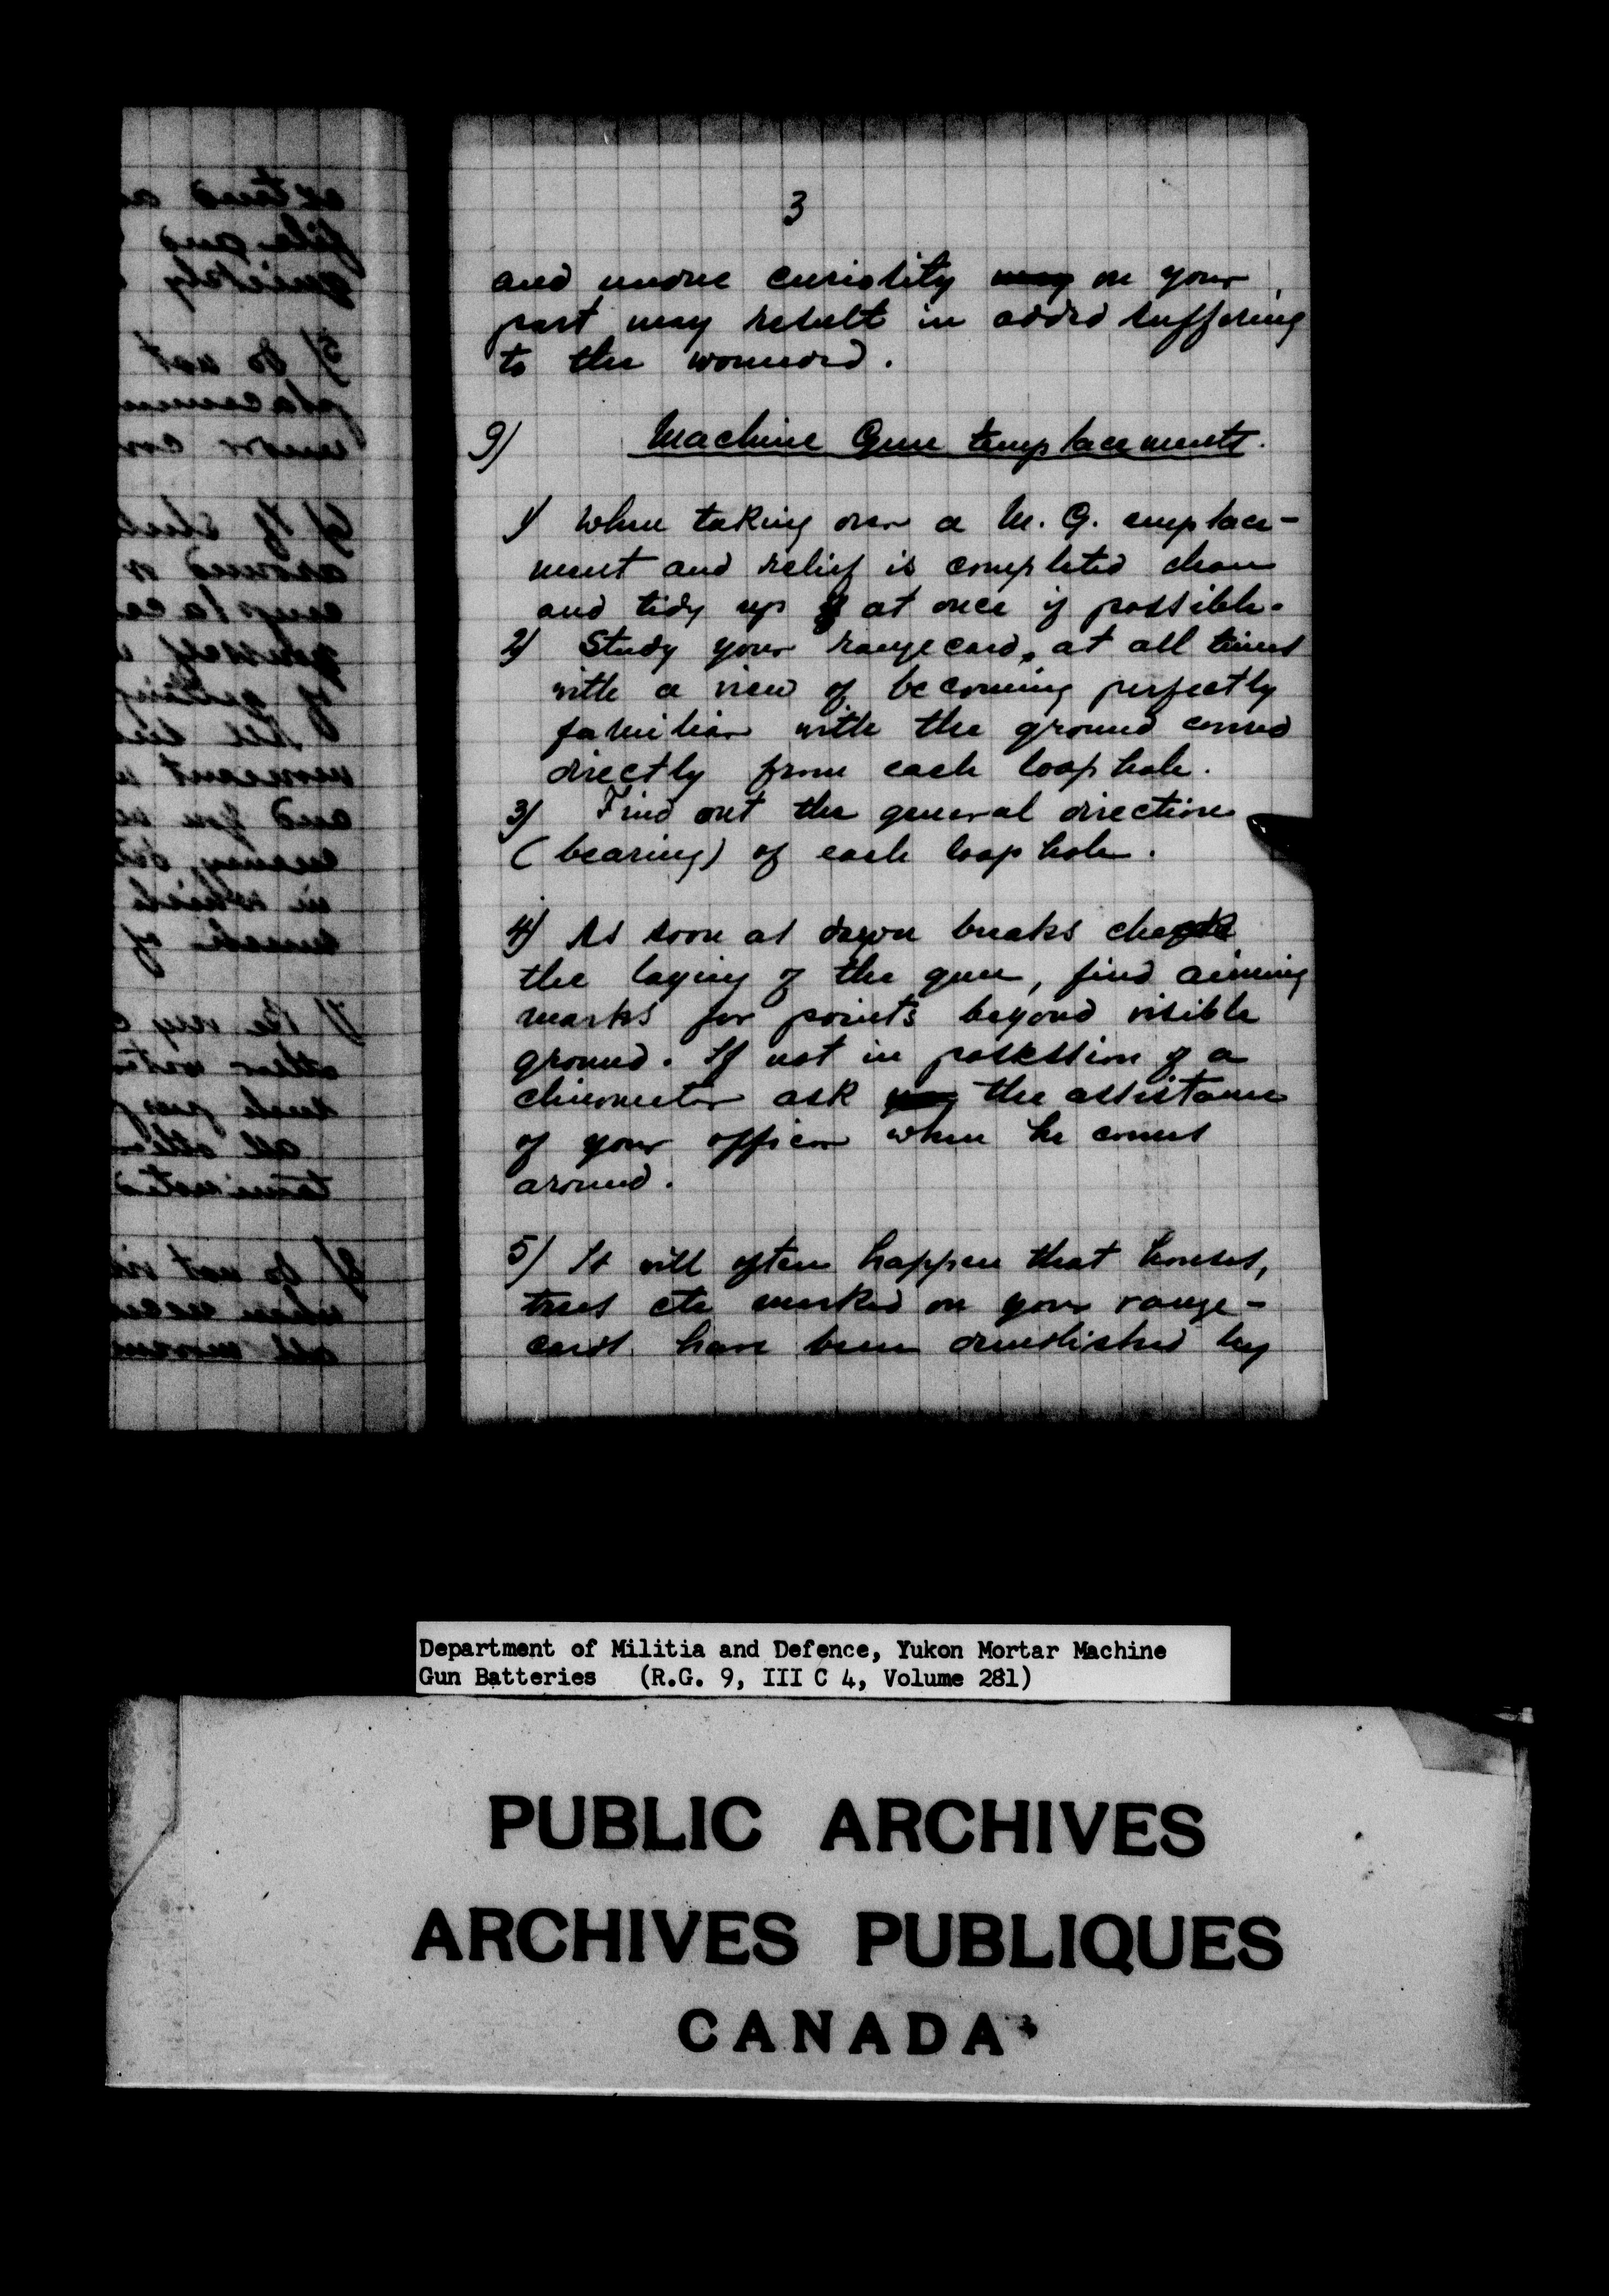 3
and undue curiosity may on your
part may result in added suffering
to the wounded.
9) Machine Gun Emplacements.
1) When taking over a M. G. emplace-
ment and relief is completed clean
and tidy up at once if possible.
2) Study your rangecard, at all times
with a view of becoming perfectly
familiar with the ground covered
directly from each loop hole.
3) Find out the general direction
(bearing) of each loop hole.
4) As soon as dawn breaks check
the laying of the gun, find aiming
marks for points beyond visible
ground. If not in possession of a
clinometer ask the assistance
of your officer when he comes
around.
5) It will often happen that houses,
trees etc marked on your range-
card have been demolished by
Department of Militia and Defence, Yukon Mortar Machine
Gun Batteries (R.G. 9, III C 4, Volume 281)
PUBLIC ARCHIVES
ARCHIVES PUBLIQUES
CANADA